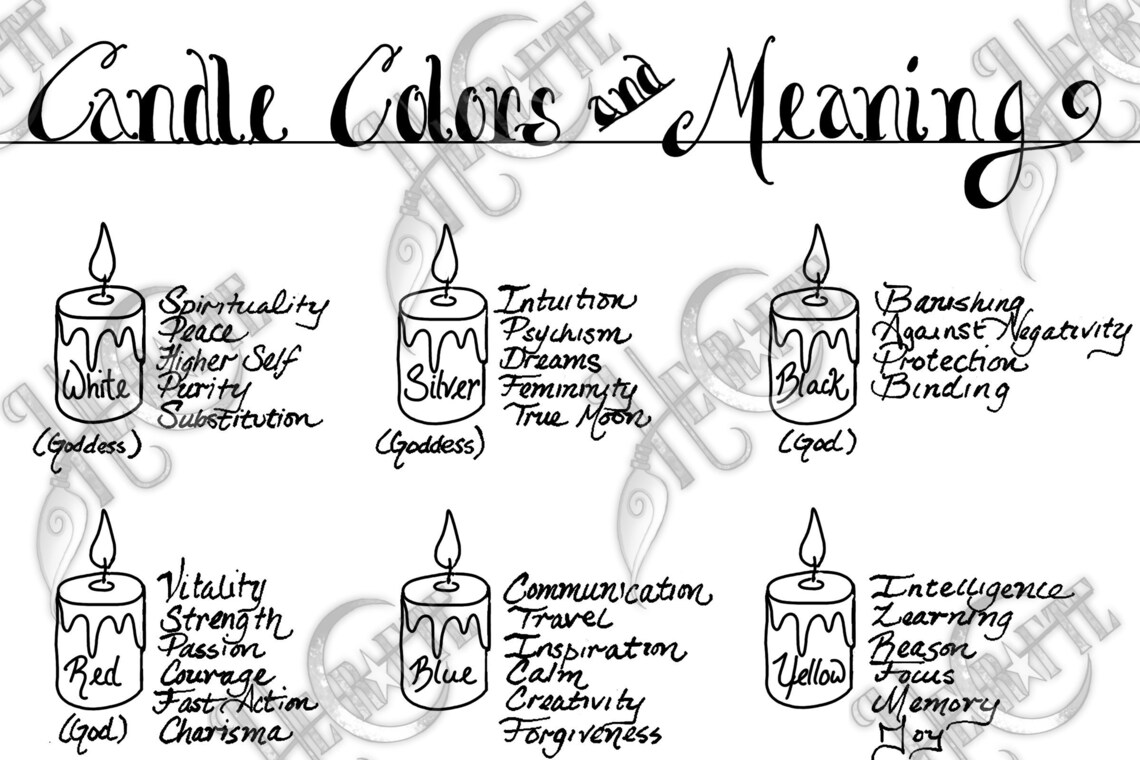 Candle Colors and Meaning
White
(Goddess)
Spirituality
Peace
Higher Self
Purity
Substitution
Silver
(Goddess)
Intuition
Psychism
Dreams
Femininity
True Moon
Black
(God)
Banishing
Against Negativity
Protection
Binding
Red
(God)
Vitality
Strength
Passion
Courage
Fast Action
Charisma
Blue
Communication
Travel
Inspiration
Calm
Creativity
Forgiveness
Yellow
Intelligence
Learning
Reason
Focus
Memory
Joy